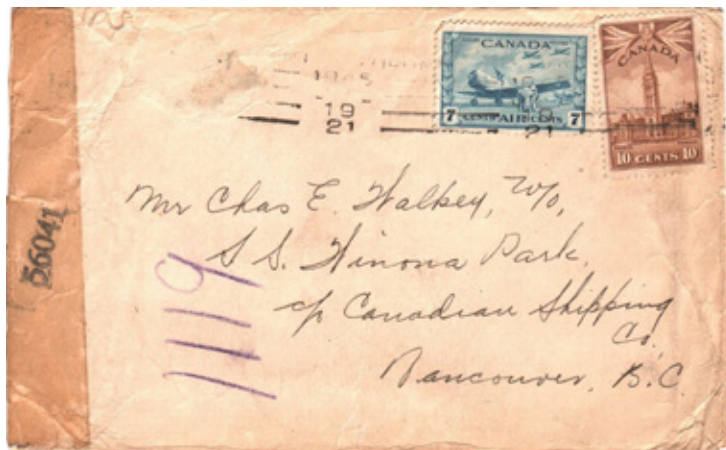 1945
19
21
21
CANADA
7 CENTS AIR CENTS 7
CANADA
10 CENTS 10
56041
1119
Mr Chas E. Walkey, W/o,
S S. Winona Park,
c/o Canadian Shipping
Co.
Vancouver, B.C.